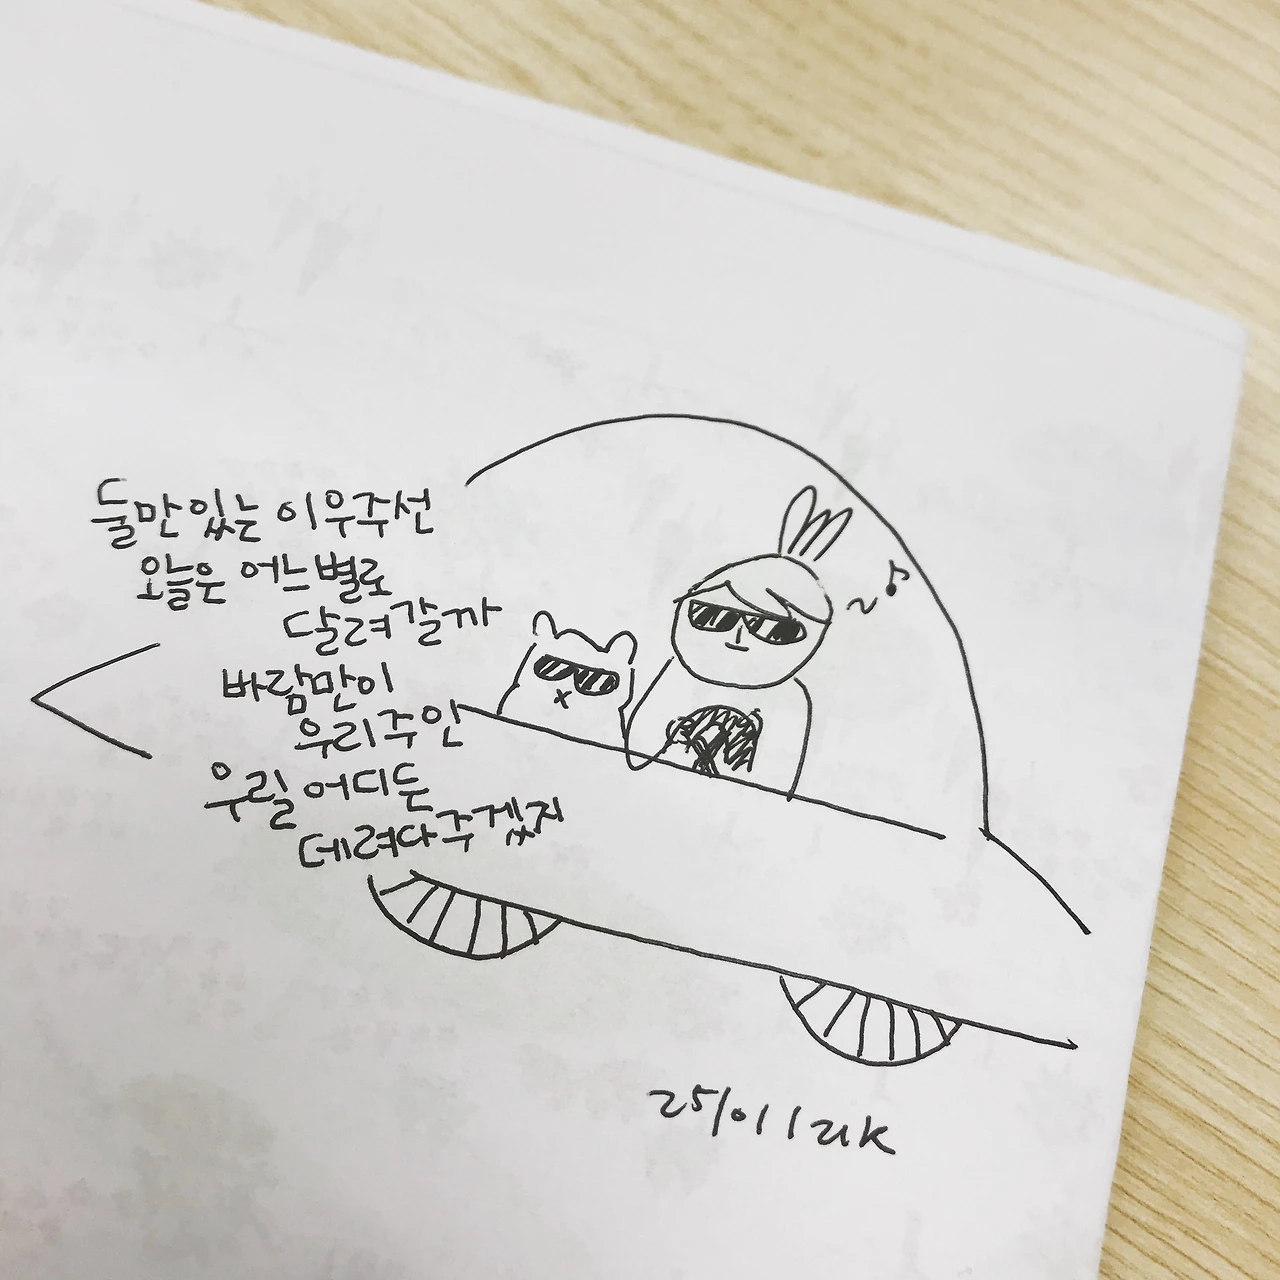 둘만 있는 이 우주선
오늘은 어느 별로
달려갈까
바람만이
우리 주인
우릴 어디든
데려다주겠지
25/01